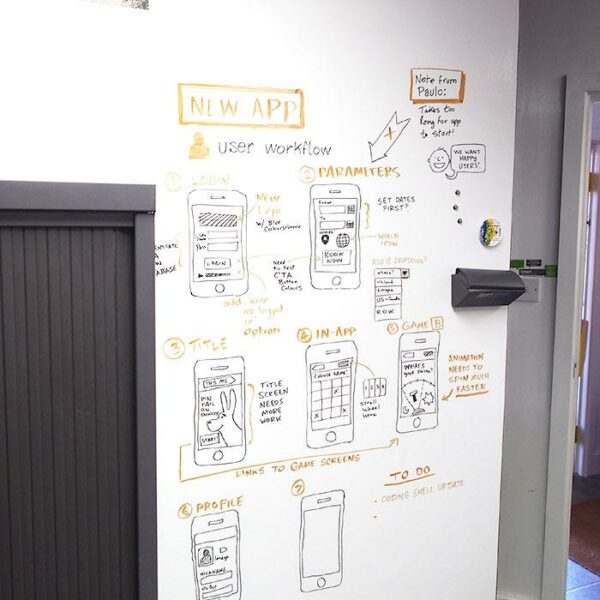 NEW APP
USER WORKFLOW
Note from
Paulo:
Takes too
long for app
to start!
WE WANT
HAPPY
USERS!
1 LOGIN
New
Logo
w/ Blue
LOGIN
Need
to test
CTA
Button
Colours
add keep
me logged
in
option
2 PARAMETERS
From
To
BOOK
NOW
SET DATES
FIRST?
WORLD
ICON
ADD A DROPDOWN?
Where?
Ireland
Europe
R.O.W
3 TITLE
PIN
TAIL
ON
DONKEY
START
TITLE
SCREEN
NEEDS
MORE
WORK
4 IN-APP
CHOOSE GAME!
X
X
Scroll
Wheel
here
5 GAME B
WHAT'S
YOUR
ANIMATION
NEEDS TO
SPIN MUCH
FASTER
LINKS TO GAME SCREENS
TO DO
- CODING SHELL UPDATE
-
6 PROFILE
Image
NICKNAME
7